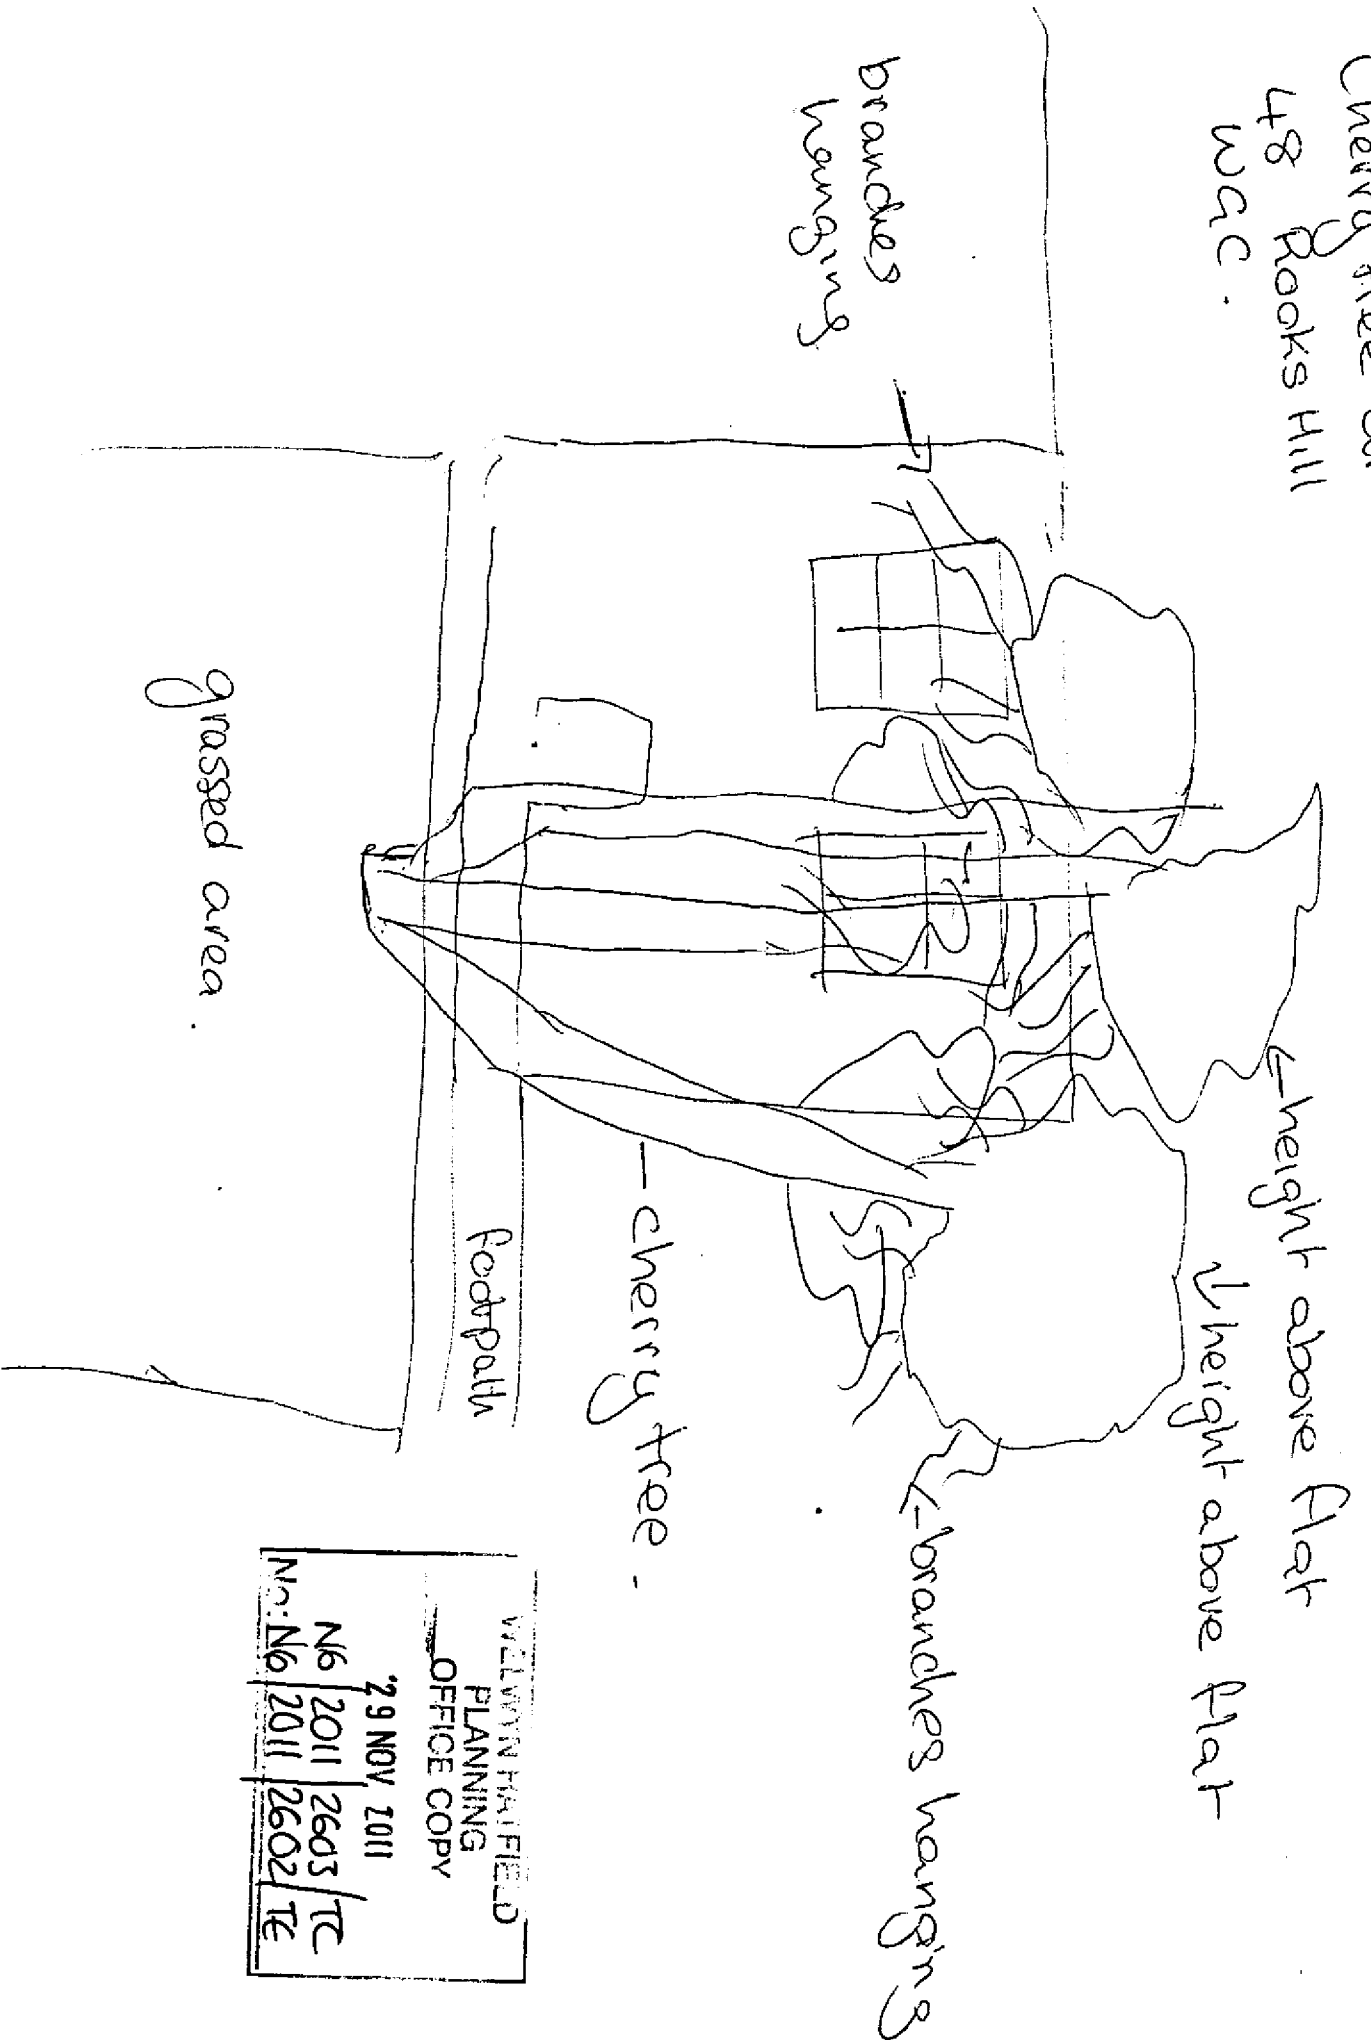 Cherry tree at
48 Rooks Hill
WGC.
←height above flat
↓height above flat
branches
hanging
←branches hanging
cherry tree.
footpath
grassed area.
WELWYN HATFIELD
PLANNING
OFFICE COPY
29 NOV 2011
N6/2011/2605/TC
No: N6/2011/2602/TC